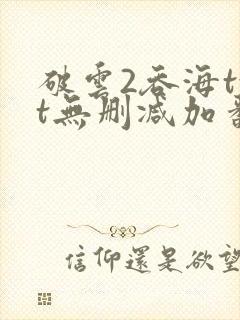 破雲2吞海t
t無刪减加
信仰還是欲望